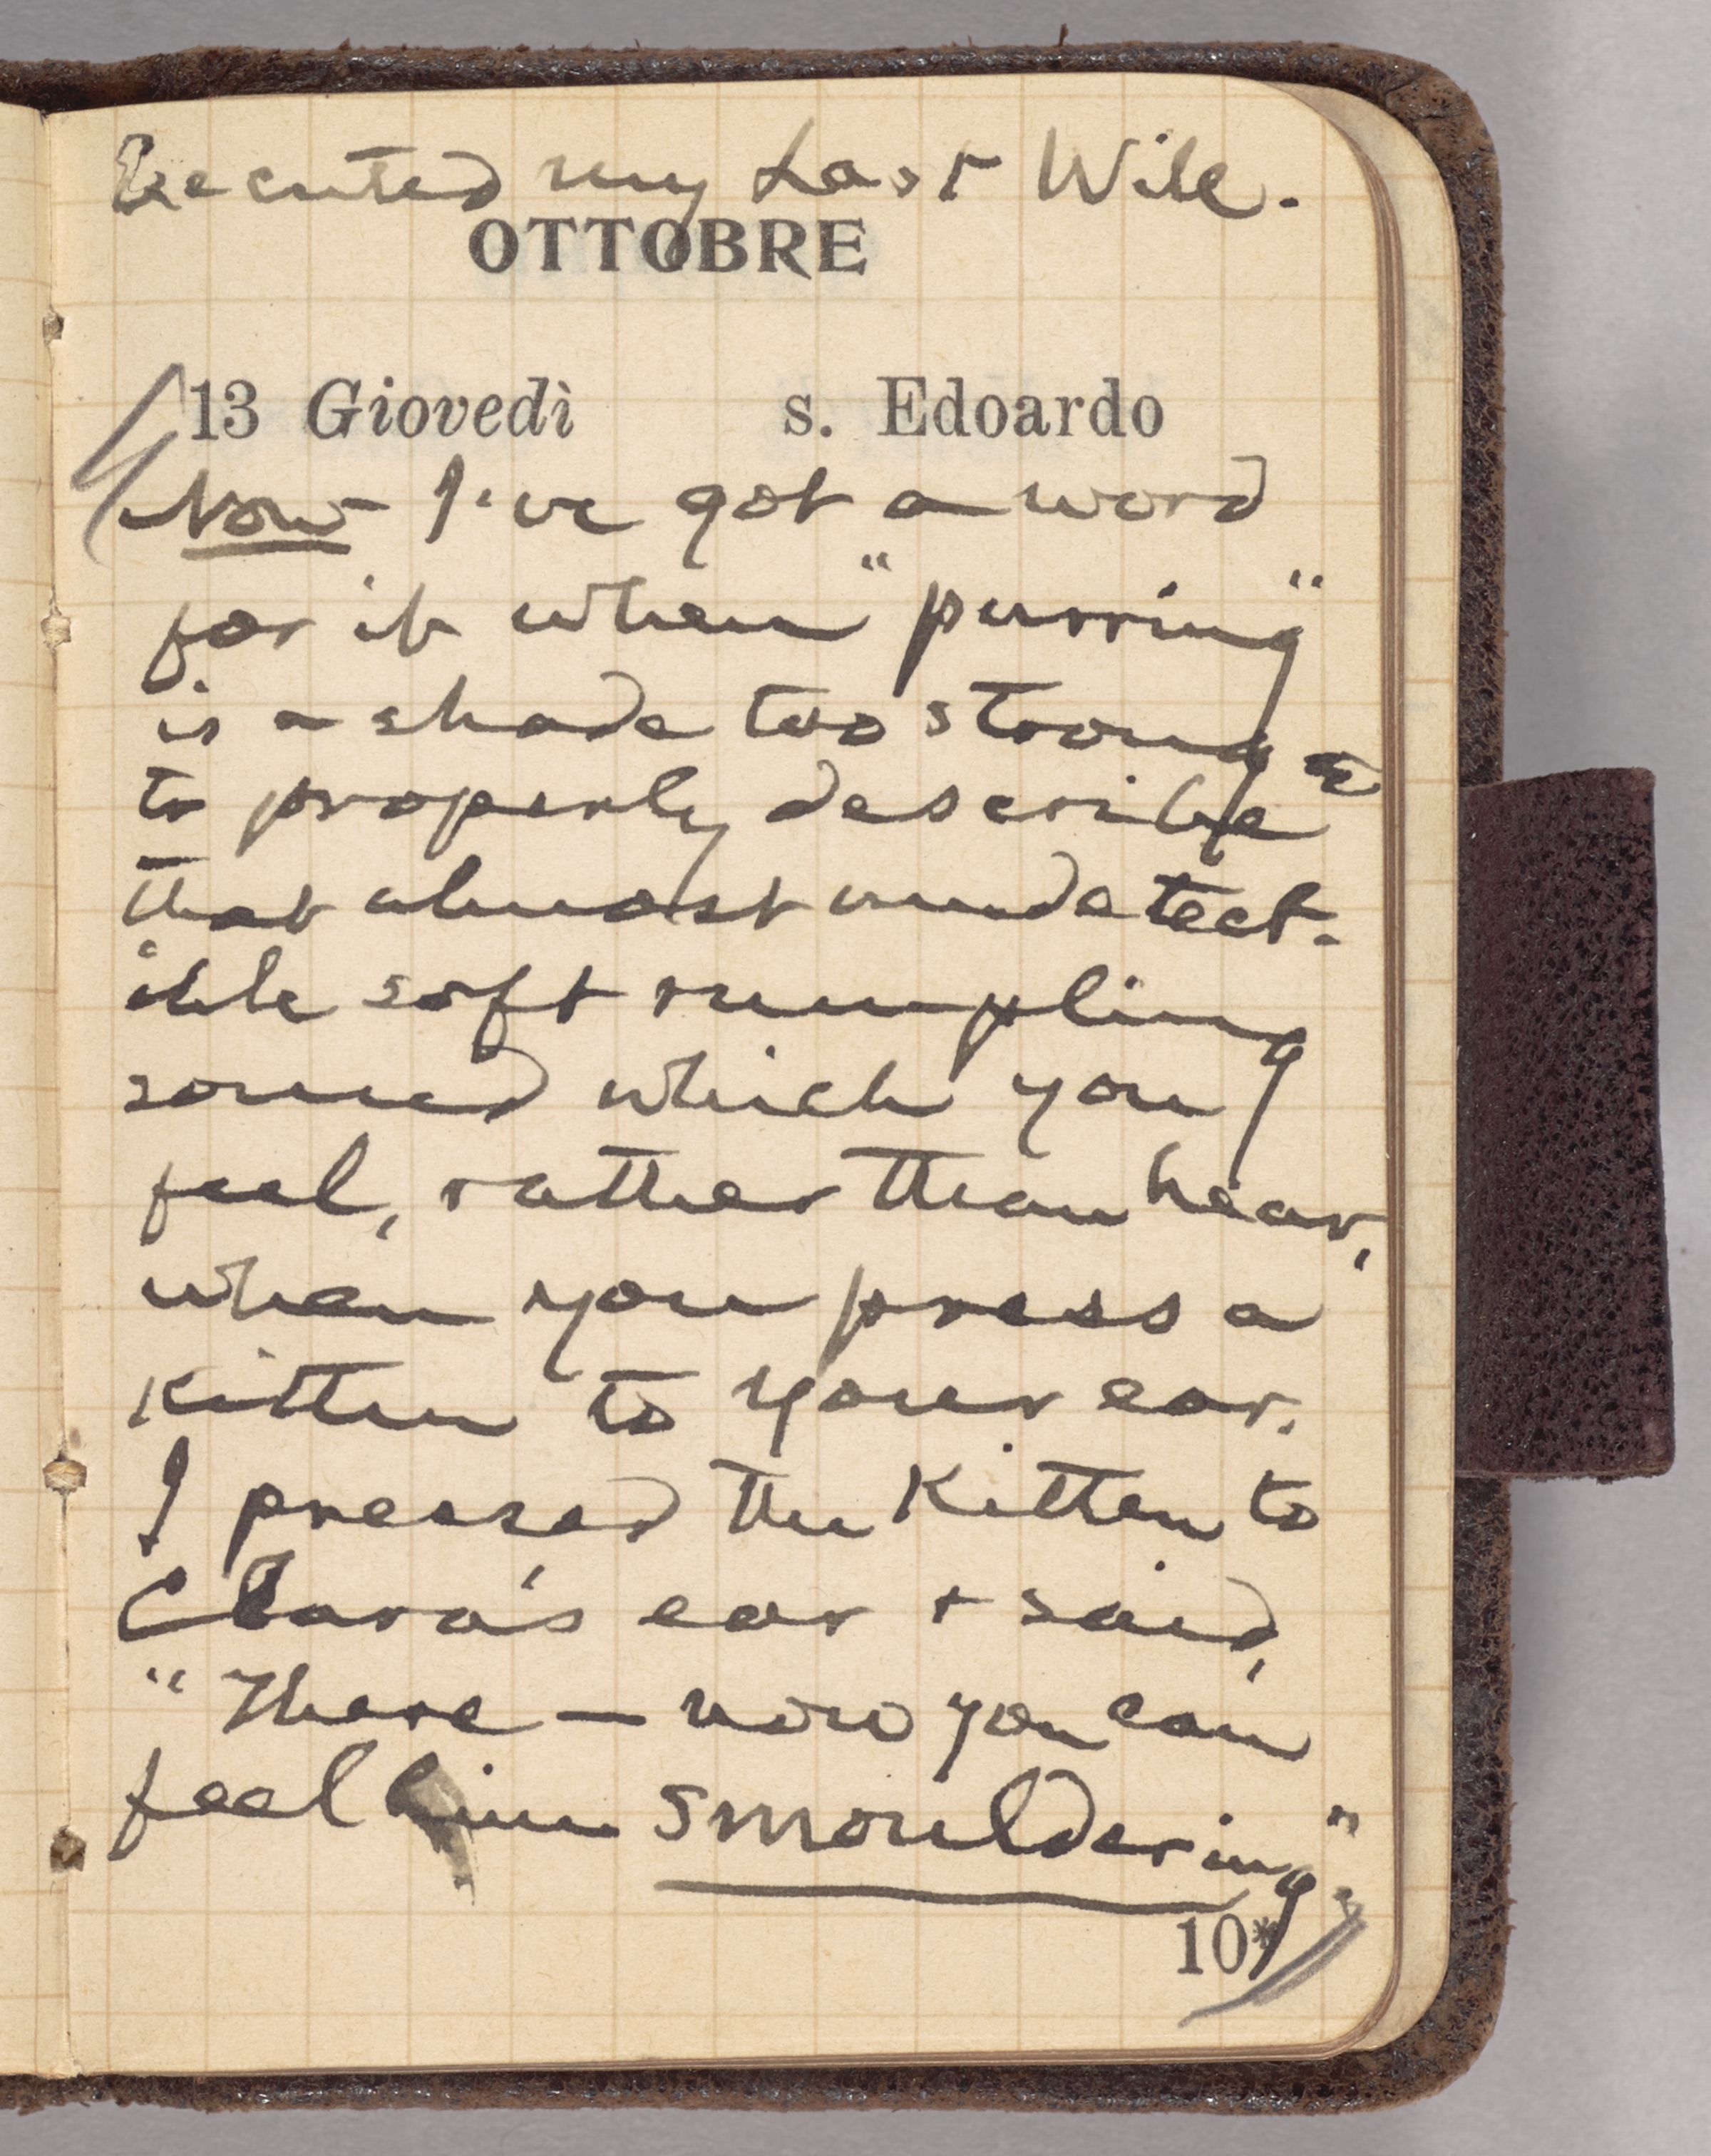 Executed my Last Will.
OTTOBRE
13 Giovedì s. Edoardo
Now I've got a word
for it when "purring"
is a shade too strong
to properly describe
that almost undetect-
ible soft rumpling
sound which you
feel, rather than hear,
when you press a
kitten to your ear.
I pressed the kitten to
Clara's ear & said,
"There — now you can
feel him smouldering"
10*